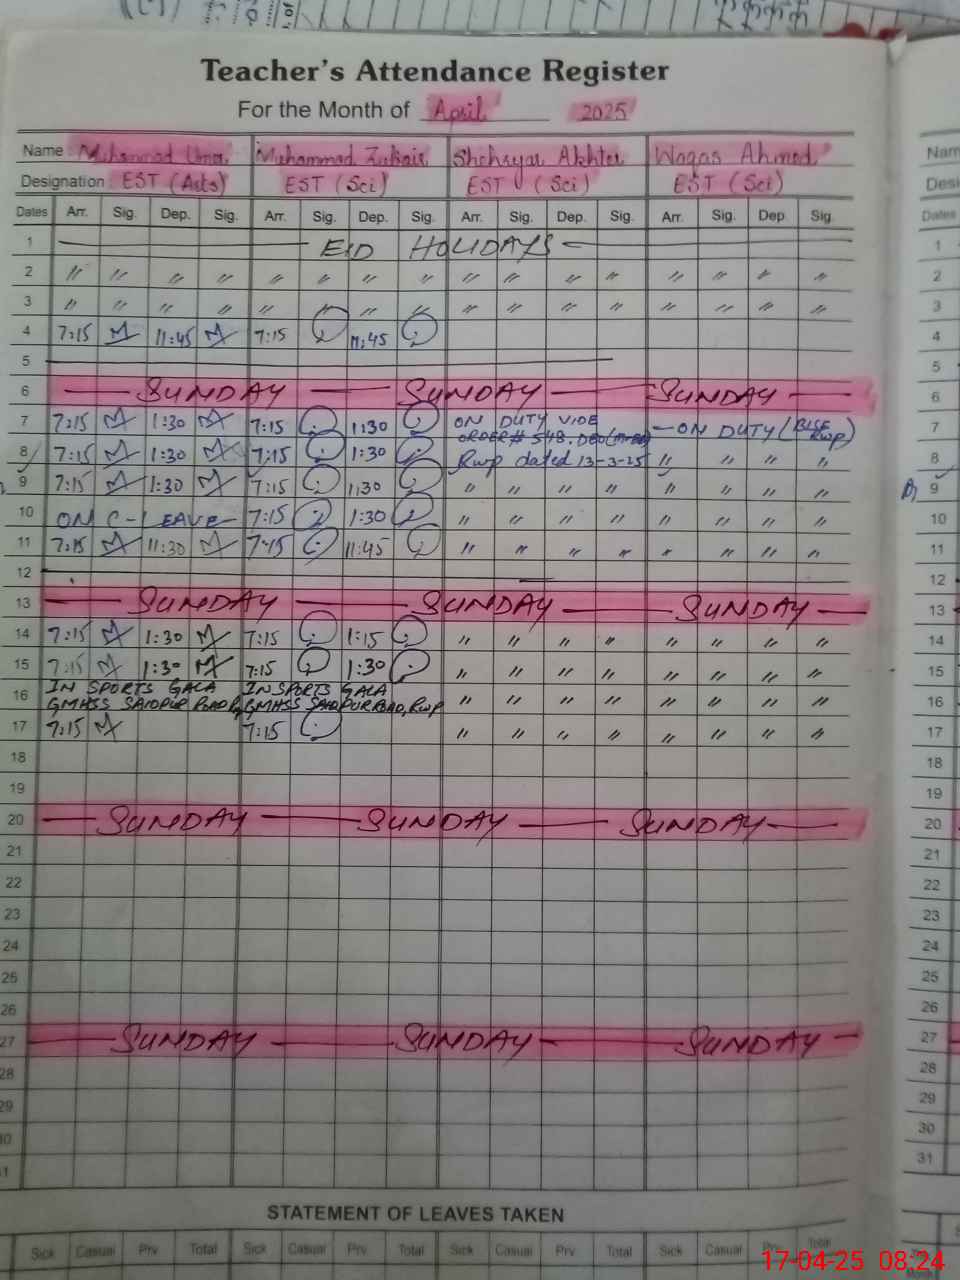 Teacher's Attendance Register
For the Month of April 2025
Name : Muhammad Umar Muhammad Zubair Shehryar Akhter Waqas Ahmed
Designation : EST (Arts) EST (Sci) EST (Sci) EST (Sci)
Dates Arr. Sig. Dep. Sig. Arr. Sig. Dep. Sig. Arr. Sig. Dep. Sig. Arr. Sig. Dep. Sig.
1 EID HOLIDAYS
2 〃 〃 〃 〃 〃 〃 〃 〃 〃 〃 〃 〃 〃 〃 〃 〃
3 〃 〃 〃 〃 〃 〃 〃 〃 〃 〃 〃 〃 〃 〃 〃 〃
4 7:15 11:45 7:15 11:45
5
6 SUNDAY SUNDAY SUNDAY
7 7:15 1:30 7:15 1:30 ON DUTY VIDE ON DUTY (BISE Rwp)
8 7:15 1:30 7:15 1:30 ORDER # 548. DEO
Rwp dated 13-3-25 〃 〃 〃 〃
9 7:15 1:30 7:15 1:30 〃 〃 〃 〃 〃 〃 〃 〃
10 ON C-LEAVE 7:15 1:30 〃 〃 〃 〃 〃 〃 〃 〃
11 7:15 11:30 7:15 11:45 〃 〃 〃 〃 〃 〃 〃 〃
12
13 SUNDAY SUNDAY SUNDAY
14 7:15 1:30 7:15 1:15 〃 〃 〃 〃 〃 〃 〃 〃
15 7:15 1:30 7:15 1:30 〃 〃 〃 〃 〃 〃 〃 〃
IN SPORTS GALA IN SPORTS GALA
16 GMHSS SAIDPUR ROAD GMHSS SAIDPUR ROAD, RWP 〃 〃 〃 〃 〃 〃 〃 〃
17 7:15 7:15 〃 〃 〃 〃 〃 〃 〃 〃
18
19
20 SUNDAY SUNDAY SUNDAY
21
22
23
24
25
26
27 SUNDAY SUNDAY SUNDAY
28
29
30
31
STATEMENT OF LEAVES TAKEN
Sick Casual Prv Total Sick Casual Prv Total Sick Casual Prv Total Sick Casual Prv Total
Dates
1
2
3
4
5
6
7
8
9
10
11
12
13
14
15
16
17
18
19
20
21
22
23
24
25
26
27
28
29
30
31
17-04-25 08:24